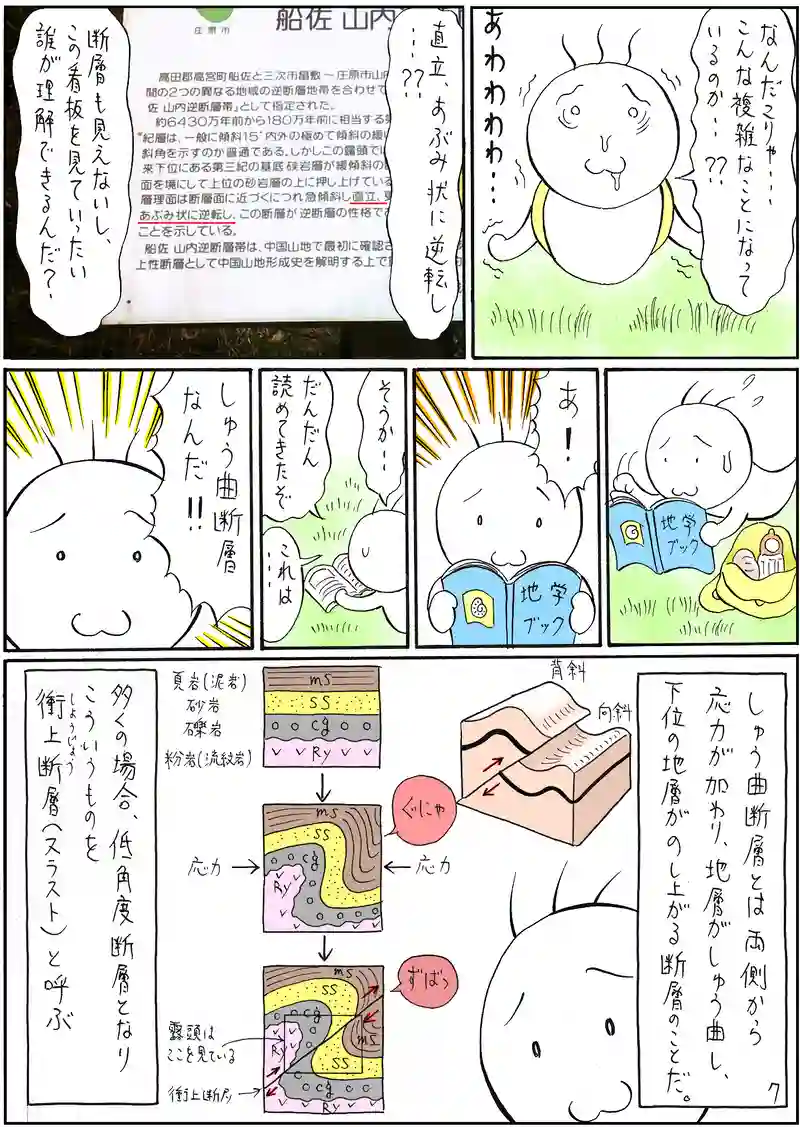 なんだこりゃ・・・
こんな複雑なことになって
いるのか・・??
あわわわわ・・・
直立、あぶみ状に逆転し
・・・??
庄原市
船佐 山内
高田郡高宮町船佐と三次市畠敷〜庄原市山内
間の2つの異なる地域の逆断層地帯を合わせて
佐 山内逆断層帯」として指定された。
約6430万年前から180万年前に相当する第
紀層は、一般に傾斜15°内外の極めて傾斜の緩い
斜角を示すのが普通である。しかしこの露頭では
来下位にある第三紀の基底 硤岩層が緩傾斜の
面を境にして上位の砂岩層の上に押し上げている
層理面は断層面に近づくにつれ急傾斜し直立、
あぶみ状に逆転し、この断層が逆断層の性格で
ことを示している。
船佐 山内逆断層帯は、中国山地で最初に確認さ
上性断層として中国山地形成史を解明する上で
断層も見えないし、
この看板を見ていったい
誰が理解できるんだ?
地学
ブック
あ!
地学
ブック
そうか・・
だんだん
読めてきたぞ
これは
・・・・
しゅう曲断層
なんだ!!
しゅう曲断層とは両側から
応力が加わり、地層がしゅう曲し、
下位の地層がのし上がる断層のことだ。
背斜
向斜
頁岩(泥岩)
砂岩
礫岩
粉岩(流紋岩)
ms
ss
cg
Ry
ぐにゃ
応力
応力
ms
ss
cg
Ry
ずばっ
ms
ss
cg
Ry
ms
ss
cg
Ry
露頭は
ここを見ている
衝上断層
多くの場合、低角度断層となり
こういうものを
しょうじょう
衝上断層(スラスト)と呼ぶ
7